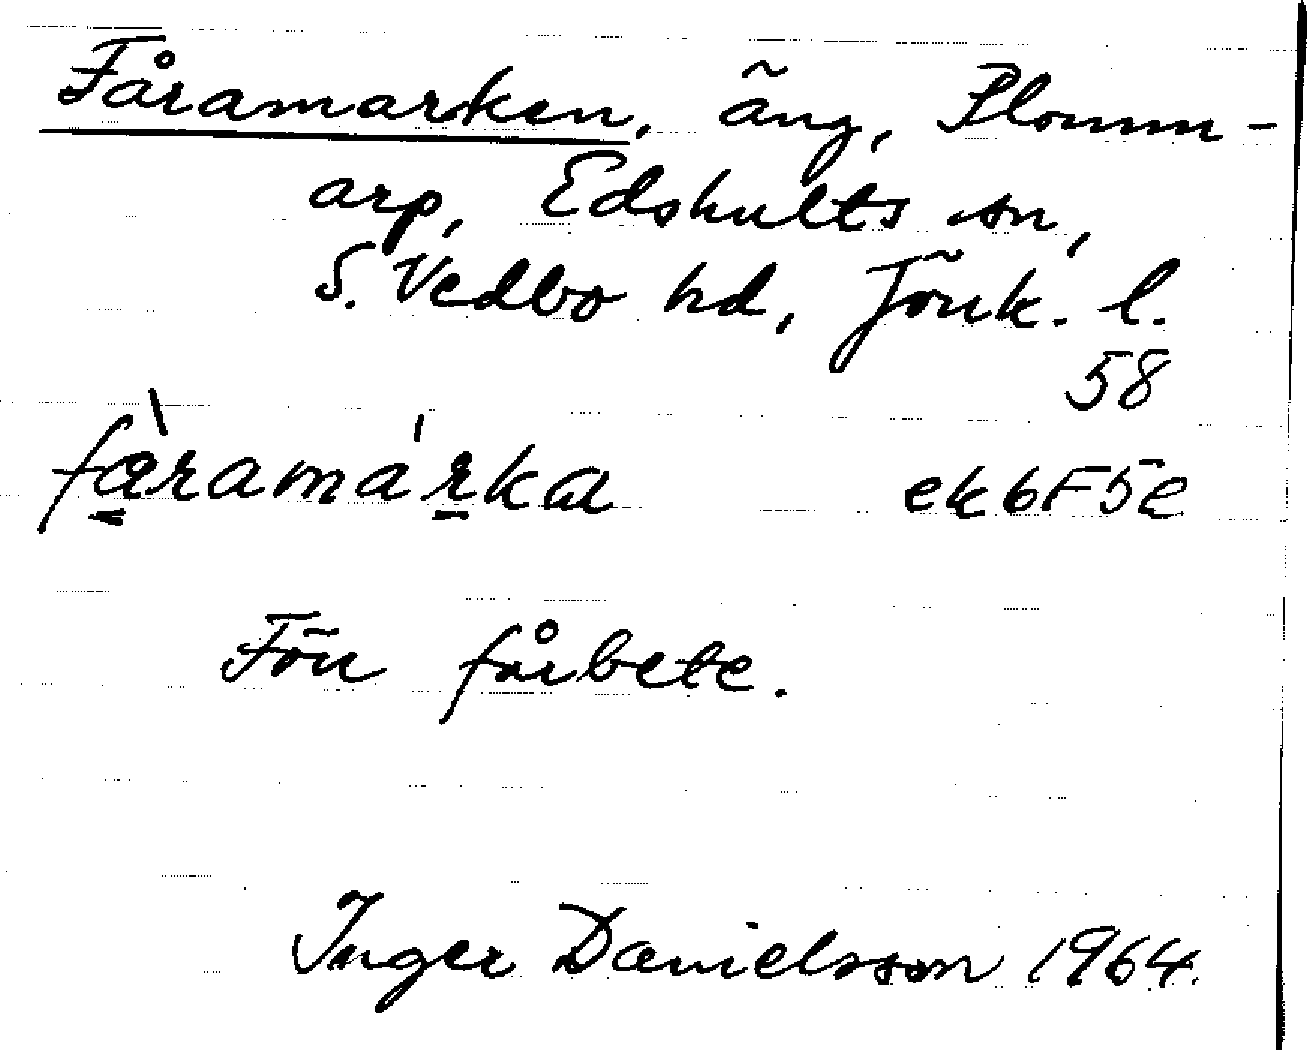 Fåramarken, äng, Plomm-
arp, Edshults sn,
S. Vedbo hd, Jönk. l.
58
fæ̀ramárka ek 6F5e
Förr fårbete.
Inger Danielsson 1964.